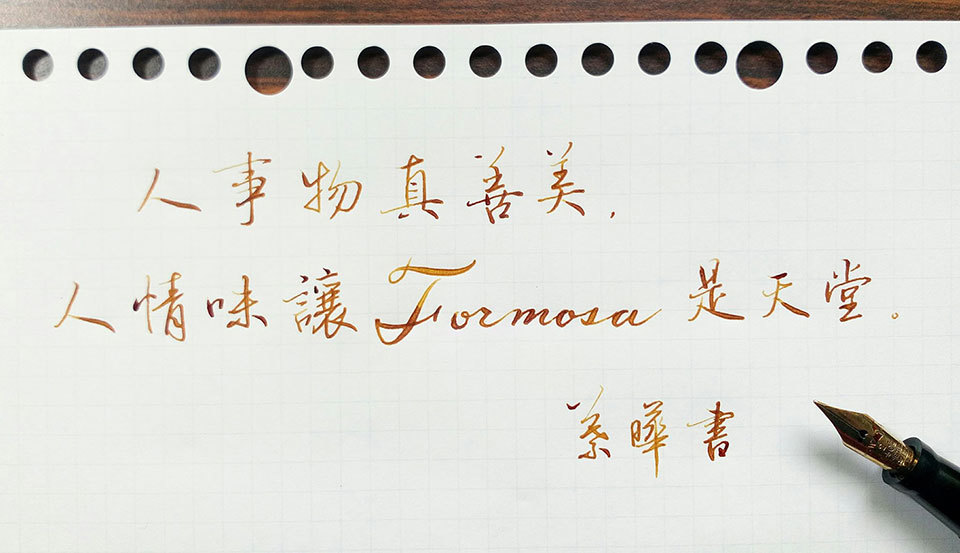 人事物真善美，
人情味讓Formosa是天堂。
葉曄書